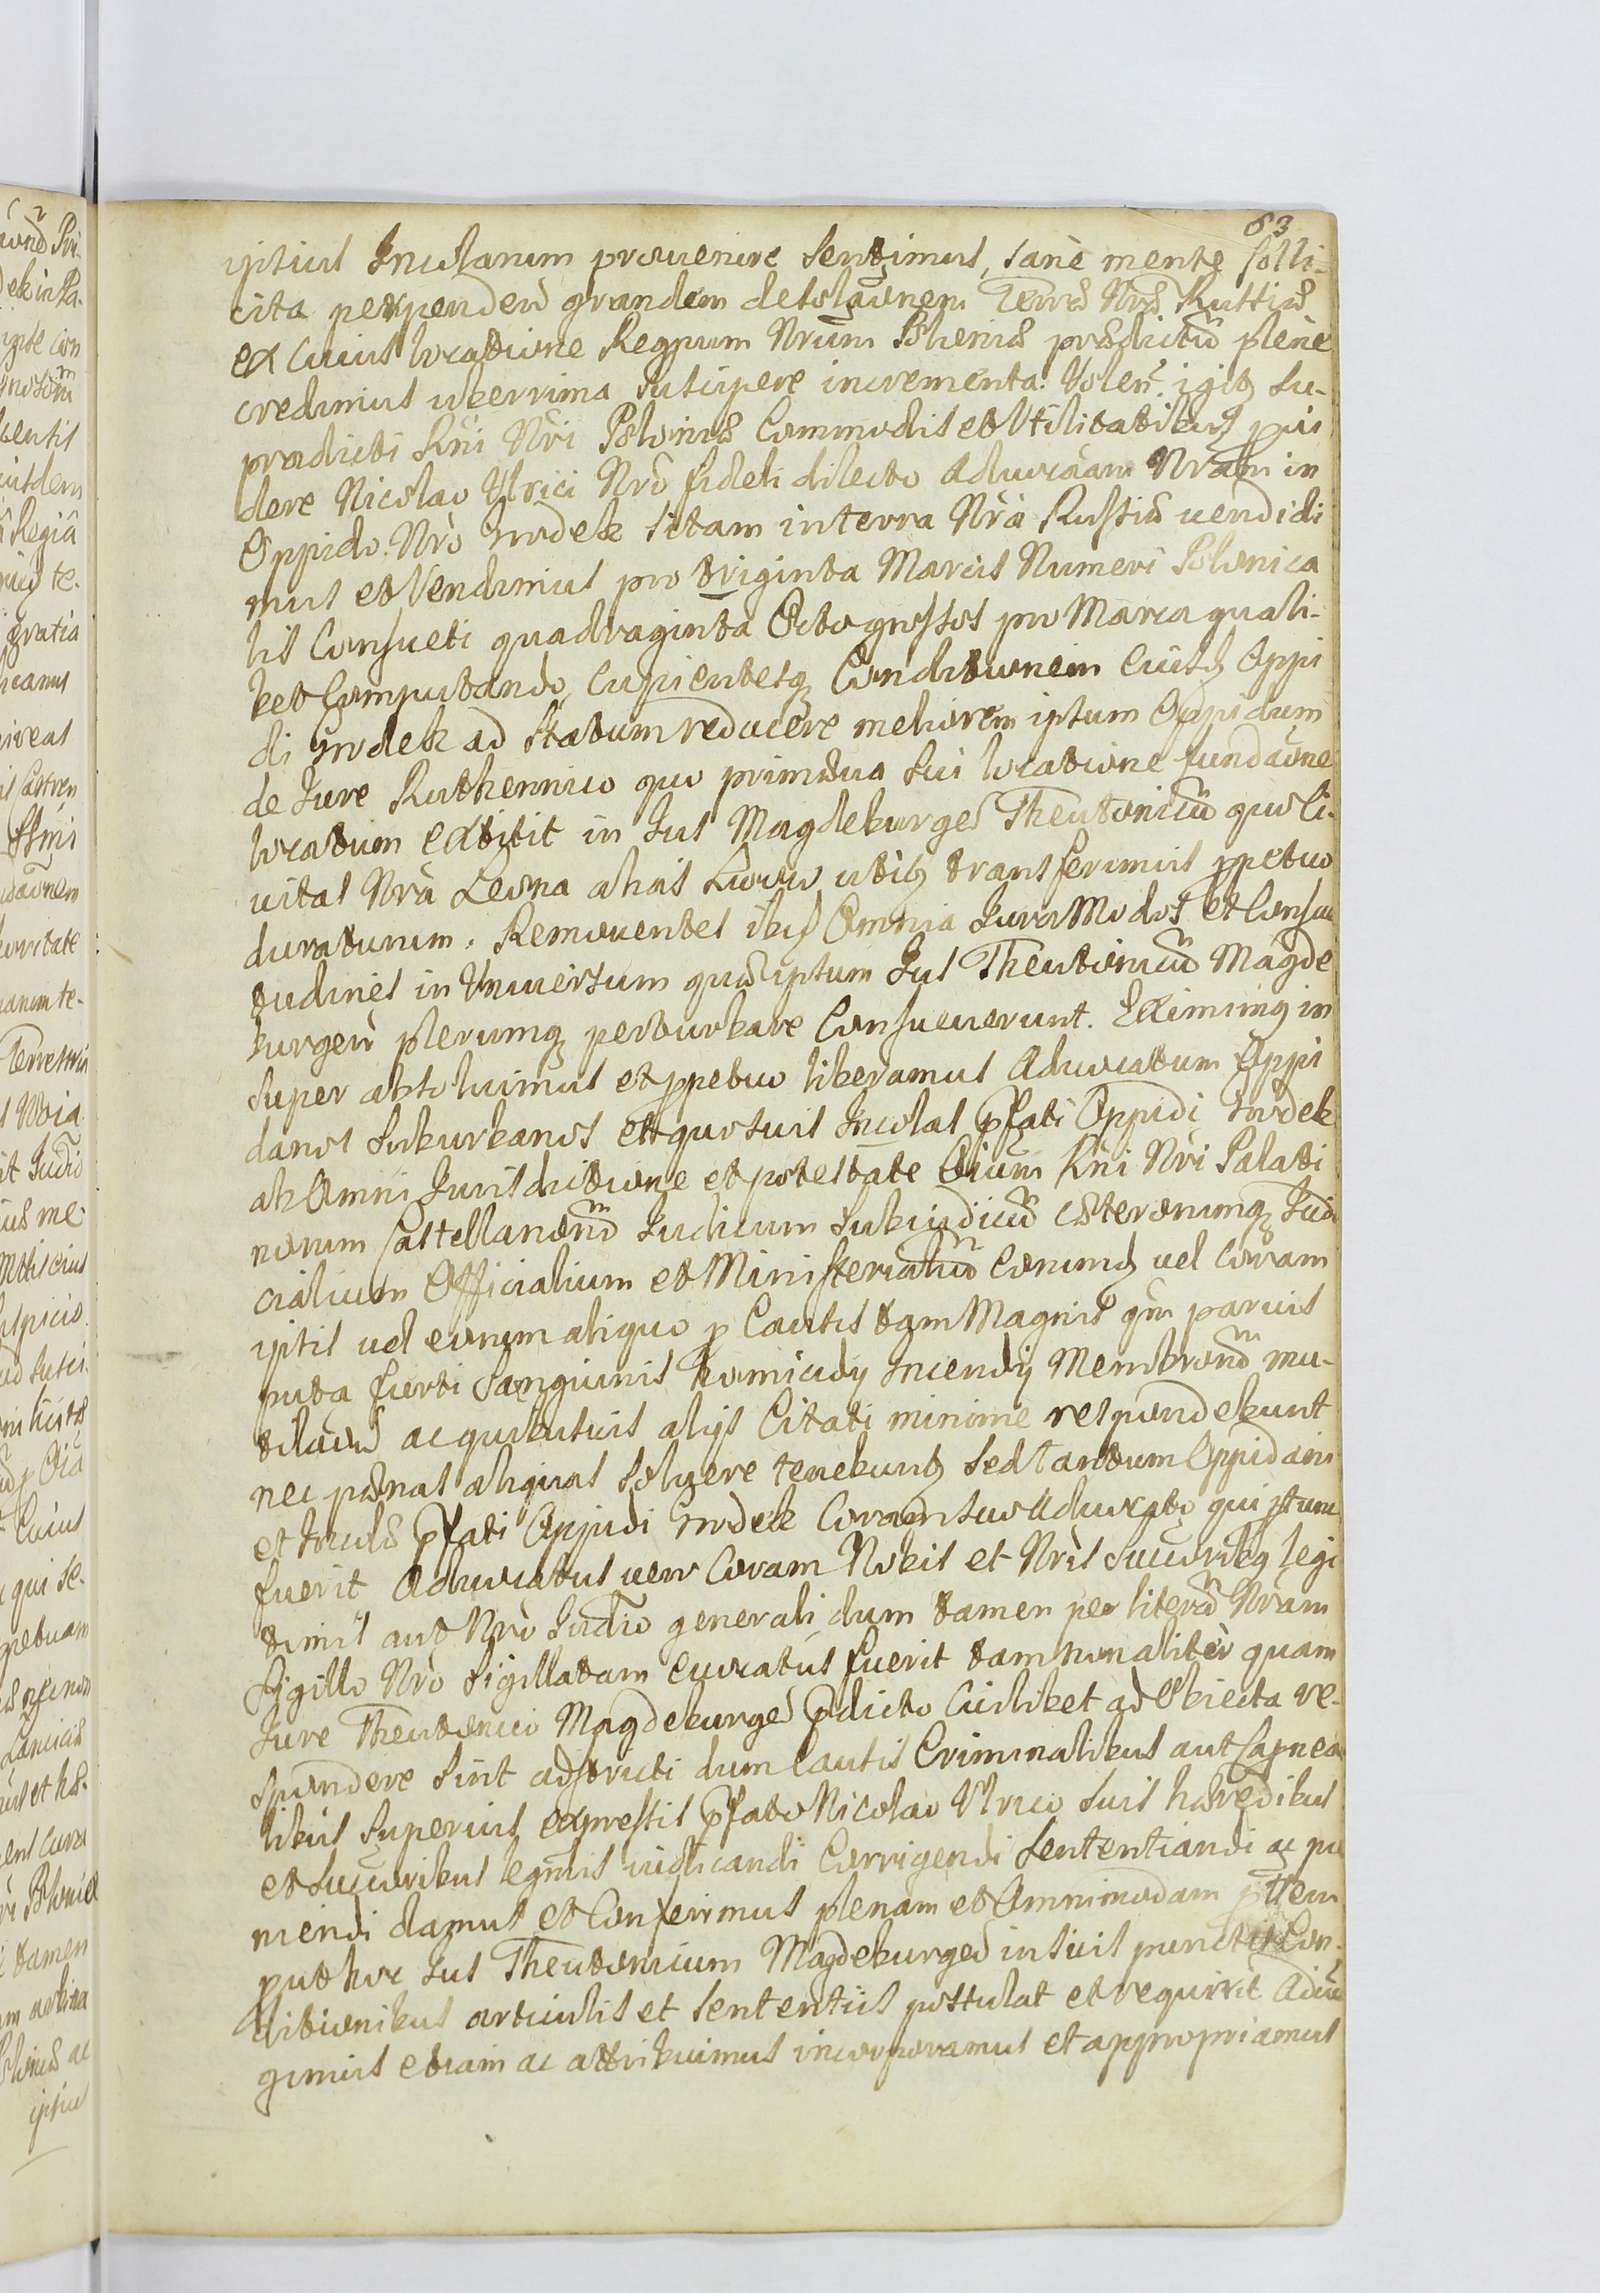 63
ipsius Incolarum provenire sentimus, sanè mente solli-
cita perpenden̄ grandem desolaōnem Terræ Nræ Russiæ
ex cuius locatione Regnum Nrūm Poloniæ prædictū plenè
credimus uberrima suscipere incrementa. Volen̄. igit su-
pradicti Rni Nri Poloniæ Commodis et Utilitatibus pui
dere Nicolao Ulrici Nrō fideli dilecto Aduocāam Nrām in
Oppido Nrò Grodek sitam in terra Nrà Russiæ uendidi
mus et Vendimus pro triginta Marcis Numeri Polonica
lis Consueti quadraginta Octo grossos pro Marca quali-
bet Computando, Cupientesq Conditionem Eiusd Oppi
di Grodek ad statum reducere meliorem ipsum Oppidum
de Iure Ruthennico quo primæua sui locatione fundaōne
locatum extitit in Ius Magdeburgen̄ Theutonicū quo Ci-
uitas Nrà Leona alias Lwow utit transferimus ppetuo
duraturum. Remouentes ibid Omnia Iura Modos et Consue
tudines in Vniuersum quæ ipsum Ius Theutonicū Magde
burgen̄ plerumq perturbare Consueuerunt. Eximimq in
super absoluimus et ppetuo liberamus Aduocatum Oppi
danos Suburbanos et quosuis Incolas pfati Oppidi Grodek
ab Omni Iurisdictione et potestate Oium Rni Nri Palati
norum Castellanorū Iudicum Subiudicū cæterorumq Iudi
cialium Officialium et Ministerialiū Eorumq uel Coram
ipsis uel eorum aliquo p Causis tam Magnis qm paruis
puta furti Sanguinis homicidy Incendy Membrorū mu-
tilaōn̄ ac quibusuis alijs Citati minime respondebunt
nec pænas aliquas soluere tenebunt sed tantum Oppidani
et Incolæ pfati Oppidi Grodek Coram suo Aduocato qui ptunc
fuerit Aduocatus uero Coram Nobis et Nris Successorib legi
timis aut Nrò Iudio generali dum tamen per literā Nrām
Sigillo Nrò Sigillatam euocatus fuerit tam non alitèr quam
Iure Theutonici Magdeburgen̄ pdicto Cuilibet ad Obiecta re-
spondere sint adstricti dum Causis Criminalibus aut Capita
libus superius expressis pfato Nicolao Ulrico suis hæredibus
et Succorībus legmis iudicandi Corrigendi Sententiandi ac pu
niendi damus et Conferimus plenam et Omnimodam ptem
put hoc Ius Theutonicum Magdeburgen̄ in suis punctis Con-
ditionibus articulis et sententiis postulat et requirit Adiun
gimus etiam ac attribuimus incorporamus et appropriamus